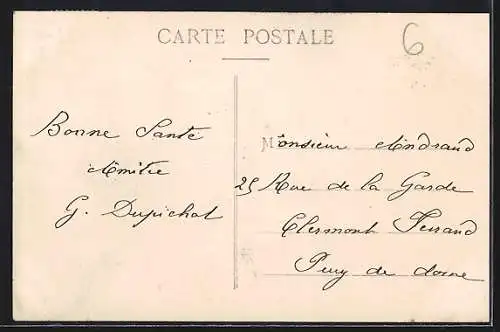 CARTE POSTALE
6
Bonne Santé
Amitié
G. Dupichat
Monsieur Andraud
25 Rue de la Garde
Clermont Ferrand
Puy de dome